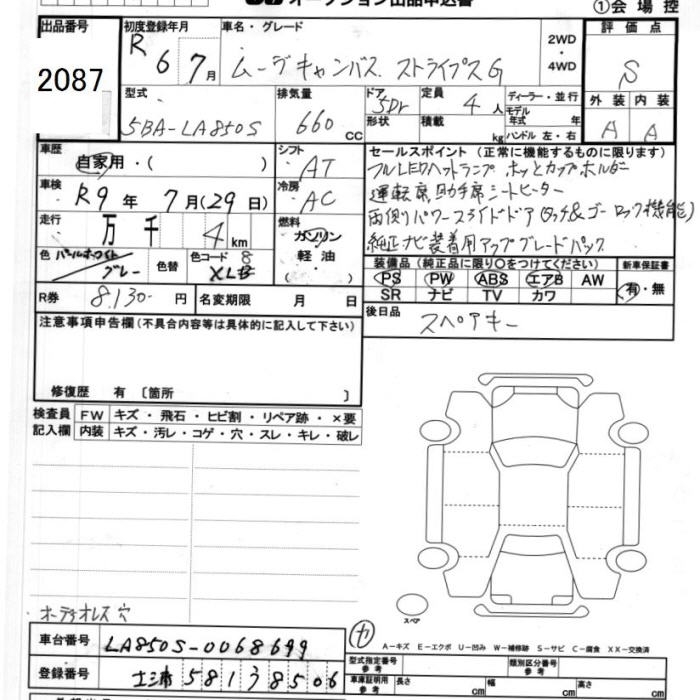 オークション出品申込書
①会場控
出品番号 初度登録年月 車名・グレード 評価点
2087
R6 7月 ムーヴキャンバス ストライプスG 2WD・4WD S
型式 排気量 ドア 定員 ディーラー・並行 外装 内装
5BA-LA850S 660cc 5Dr 4人 モデル年式 年式 A A
形状 積載 kg ハンドル 左・右
車歴 シフト セールスポイント(正常に機能するものに限ります)
自家用・( ) AT フルLEDヘッドランプ ホッとカップホルダー
車検 冷房 運転席助手席シートヒーター
R9年 7月(29日) AC 両側パワースライドドア(タッチ&ゴーロック機能)
走行 万 千 4km 燃料 純正ナビ装着用アップグレードパック
ガソリン
色 パールホワイト グレー 色替 色コード XL8 軽油 ( )
装備品(純正品に限り○をつけてください) 新車保証書
PS PW ABS エアB AW 有・無
SR ナビ TV カワ
R券 8.130- 円 名変期限 月 日
後日品 スペアキー
注意事項申告欄(不具合内容等は具体的に記入して下さい)
修復歴 有 〔箇所 〕
検査員 FW キズ・飛石・ヒビ割・リペア跡・×要
記入欄 内装 キズ・汚レ・コゲ・穴・スレ・キレ・破レ
スペア
オーディオレス 穴
A-キズ E-エクボ U-凹み W-補修跡 S-サビ C-腐食 XX-交換済
車台番号 LA850S-0068699
型式指定番号 参考 類別区分番号 参考
登録番号 土浦 581 ひ 8506
車庫証明用 参考 長さ cm 幅 cm 高さ cm